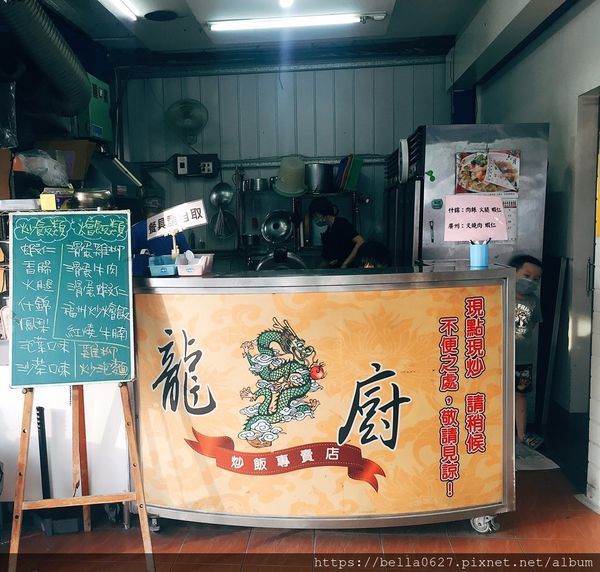 炒飯類
燴飯類
蝦仁
香腸
火腿
什錦
鳳梨
泡菜口味
沙茶口味
滑蛋雞柳
滑蛋牛肉
滑蛋蝦仁
福州炒燴飯
紅燒牛腩
雞柳
炒泡麵
餐具自取
什錦：肉絲 火腿 蝦仁
廣州：叉燒肉 蝦仁
龍廚
炒飯專賣店
現點現炒 請稍候
不便之處。敬請見諒！
https://bella0627.pixnet.net/album